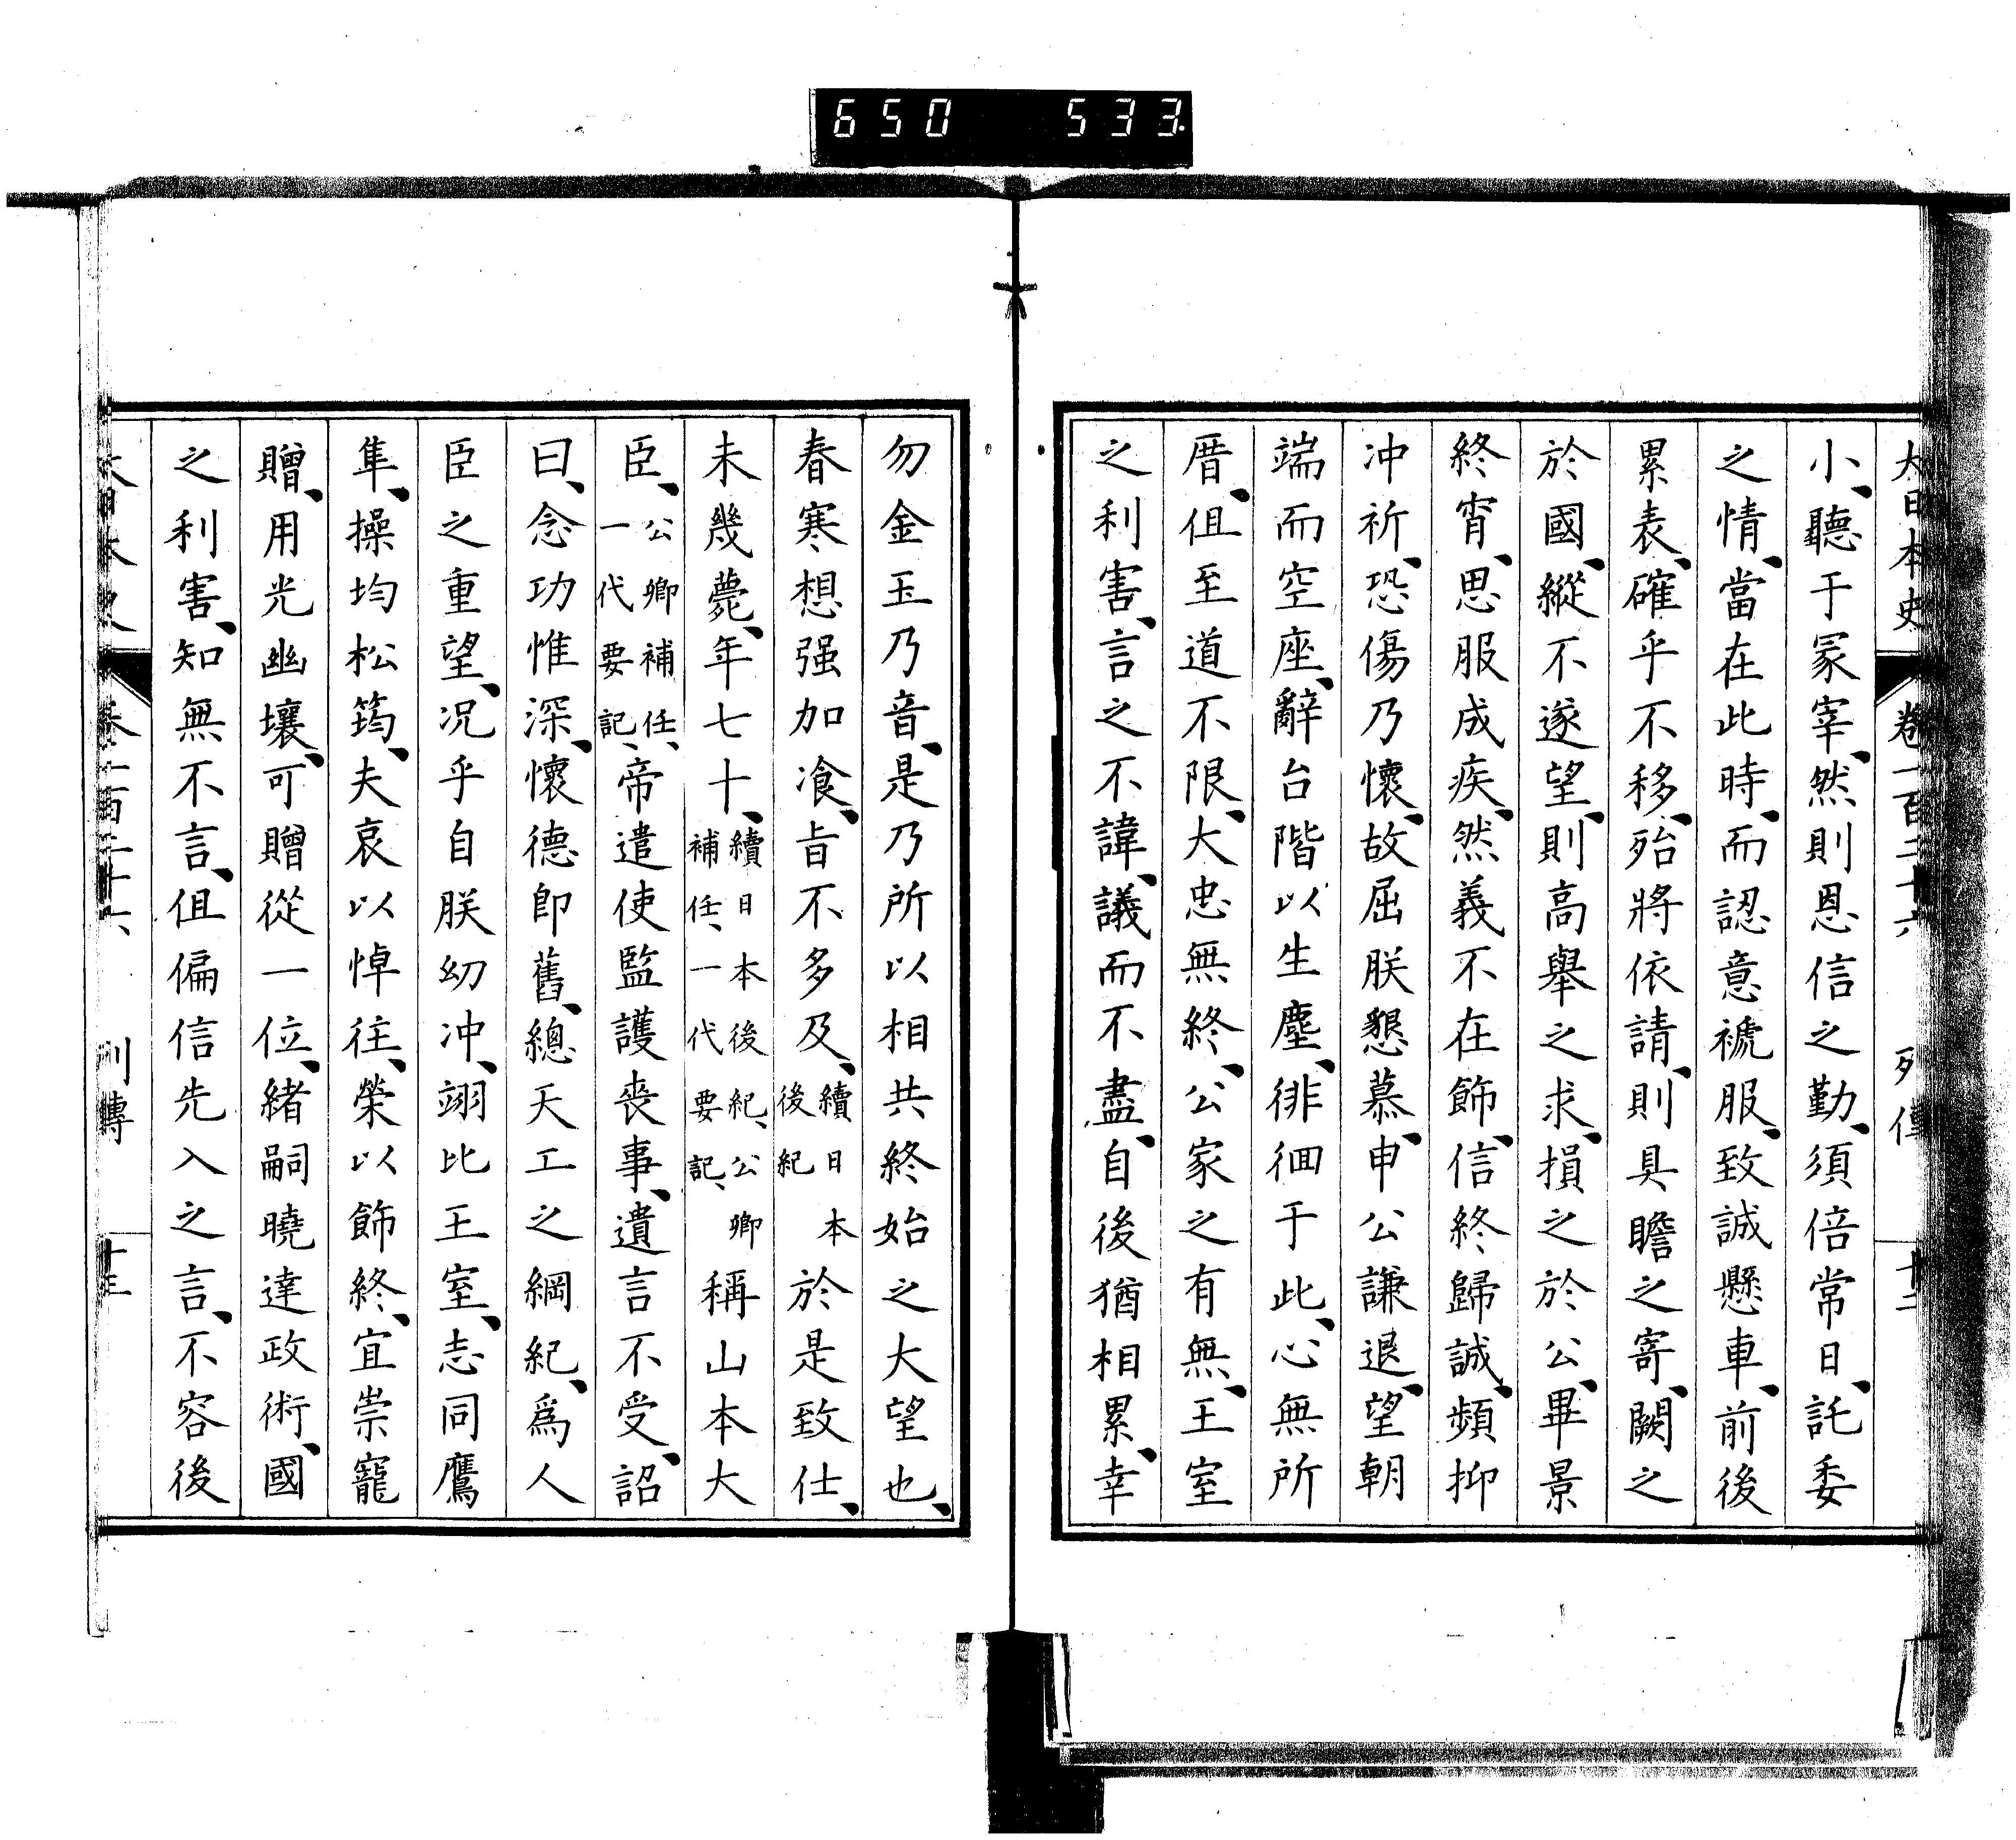 650 533.
大日本史 卷一百二十六 列傳 十二
小、聽于冢宰、然則恩信之勤、須倍常日、託委
之情、當在此時、而認意褫服、致誠懸車、前後
累表、確乎不移、殆將依請、則具瞻之寄、闕之
於國、縱不遂望、則高舉之求、損之於公、畢景
終宵、思服成疾、然義不在飾、信終歸誠、頻抑
冲祈、恐傷乃懷、故屈朕懇慕、申公謙退、望朝
端而空座、辭台階以生塵、徘徊于此、心無所
厝、伹至道不限、大忠無終、公家之有無、王室
之利害、言之不諱、議而不盡、自後猶相累、幸
勿金玉乃音、是乃所以相共終始之大望也、
春寒、想强加飡、旨不多及、續日本後紀 於是致仕、
未幾薨、年七十、續日本後紀、公卿補任、一代要記、 稱山本大
臣、公卿補任、一代要記、帝遣使監護喪事、遺言不受、詔
曰、念功惟深、懷德卽舊、總天工之綱紀、爲人
臣之重望、况乎自朕幼冲、翊比王室、志同鷹
隼、操均松筠、夫哀以悼往、榮以飾終、宜崇寵
贈、用光幽壤、可贈從一位、緖嗣曉達政術、國
之利害、知無不言、伹偏信先入之言、不容後
大日本史 卷一百二十六 列傳 十三